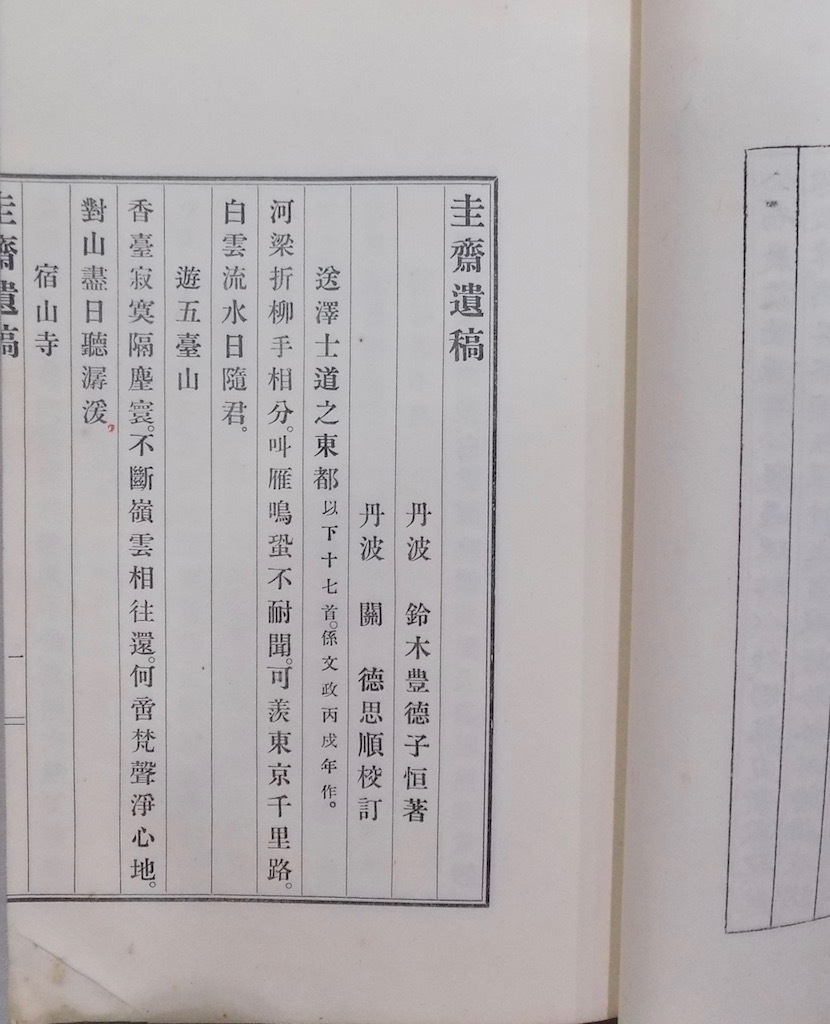 圭齋遺稿
丹波 鈴木豊德子恒著
丹波 關 德思順校訂
送澤士道之東都以下十七首。係文政丙戌年作。
河梁折柳手相分。叫雁鳴蛩不耐聞。可羨東京千里路。
白雲流水日隨君。
遊五臺山
香臺寂寞隔塵寰。不斷嶺雲相往還。何啻梵聲淨心地。
對山盡日聽潺湲。
宿山寺
圭齋遺稿
一